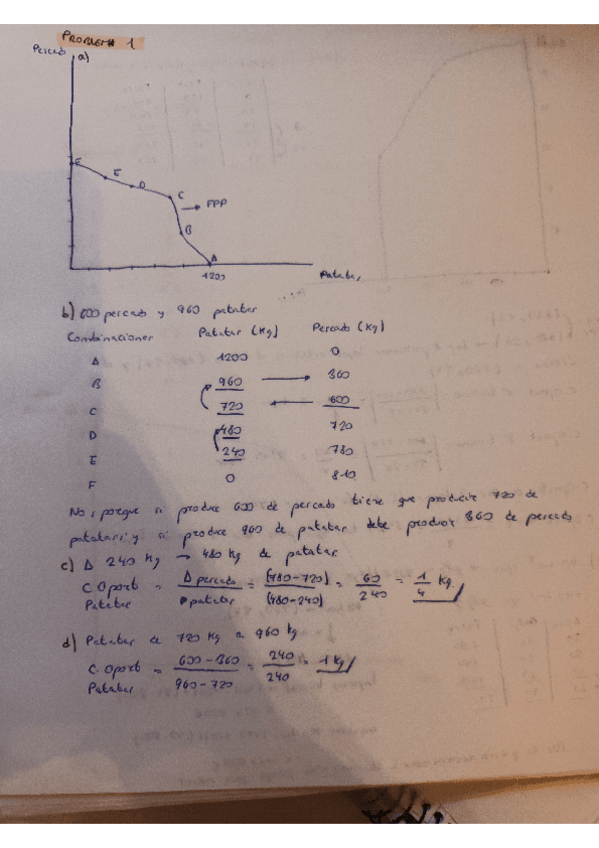 PROBLEMA 1
Pescado a)
F
E
D
C
→ FPP
B
A
1200
Patatas
b) 600 pescado y 960 patatas
Combinaciones Patatas (Kg) Pescado (Kg)
A 1200 0
B 960 → 360
C 720 ← 600
D 480 720
E 240 780
F 0 810
No, porque si produce 600 de pescado tiene que producir 720 de
patatas, y si produce 960 de patatas debe producir 360 de pescado
c) Δ 240 Kg → 480 Kg de patatas
C Oport Patatas = Δ pescado / patatas = (780-720) / (480-240) = 60 / 240 = 1 / 4 Kg
d) Patatas de 720 Kg a 960 Kg
C Oport Patatas = 600-360 / 960-720 = 240 / 240 = 1 Kg